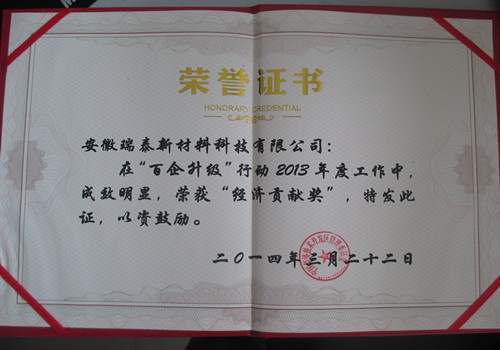 荣誉证书
HONORARY CREDENTIAL
安徽瑞泰新材料科技有限公司：
在“百企升级”行动2013年度工作中，
成效明显，荣获“经济贡献奖”，特发此
证，以资鼓励。
二〇一四年三月二十二日